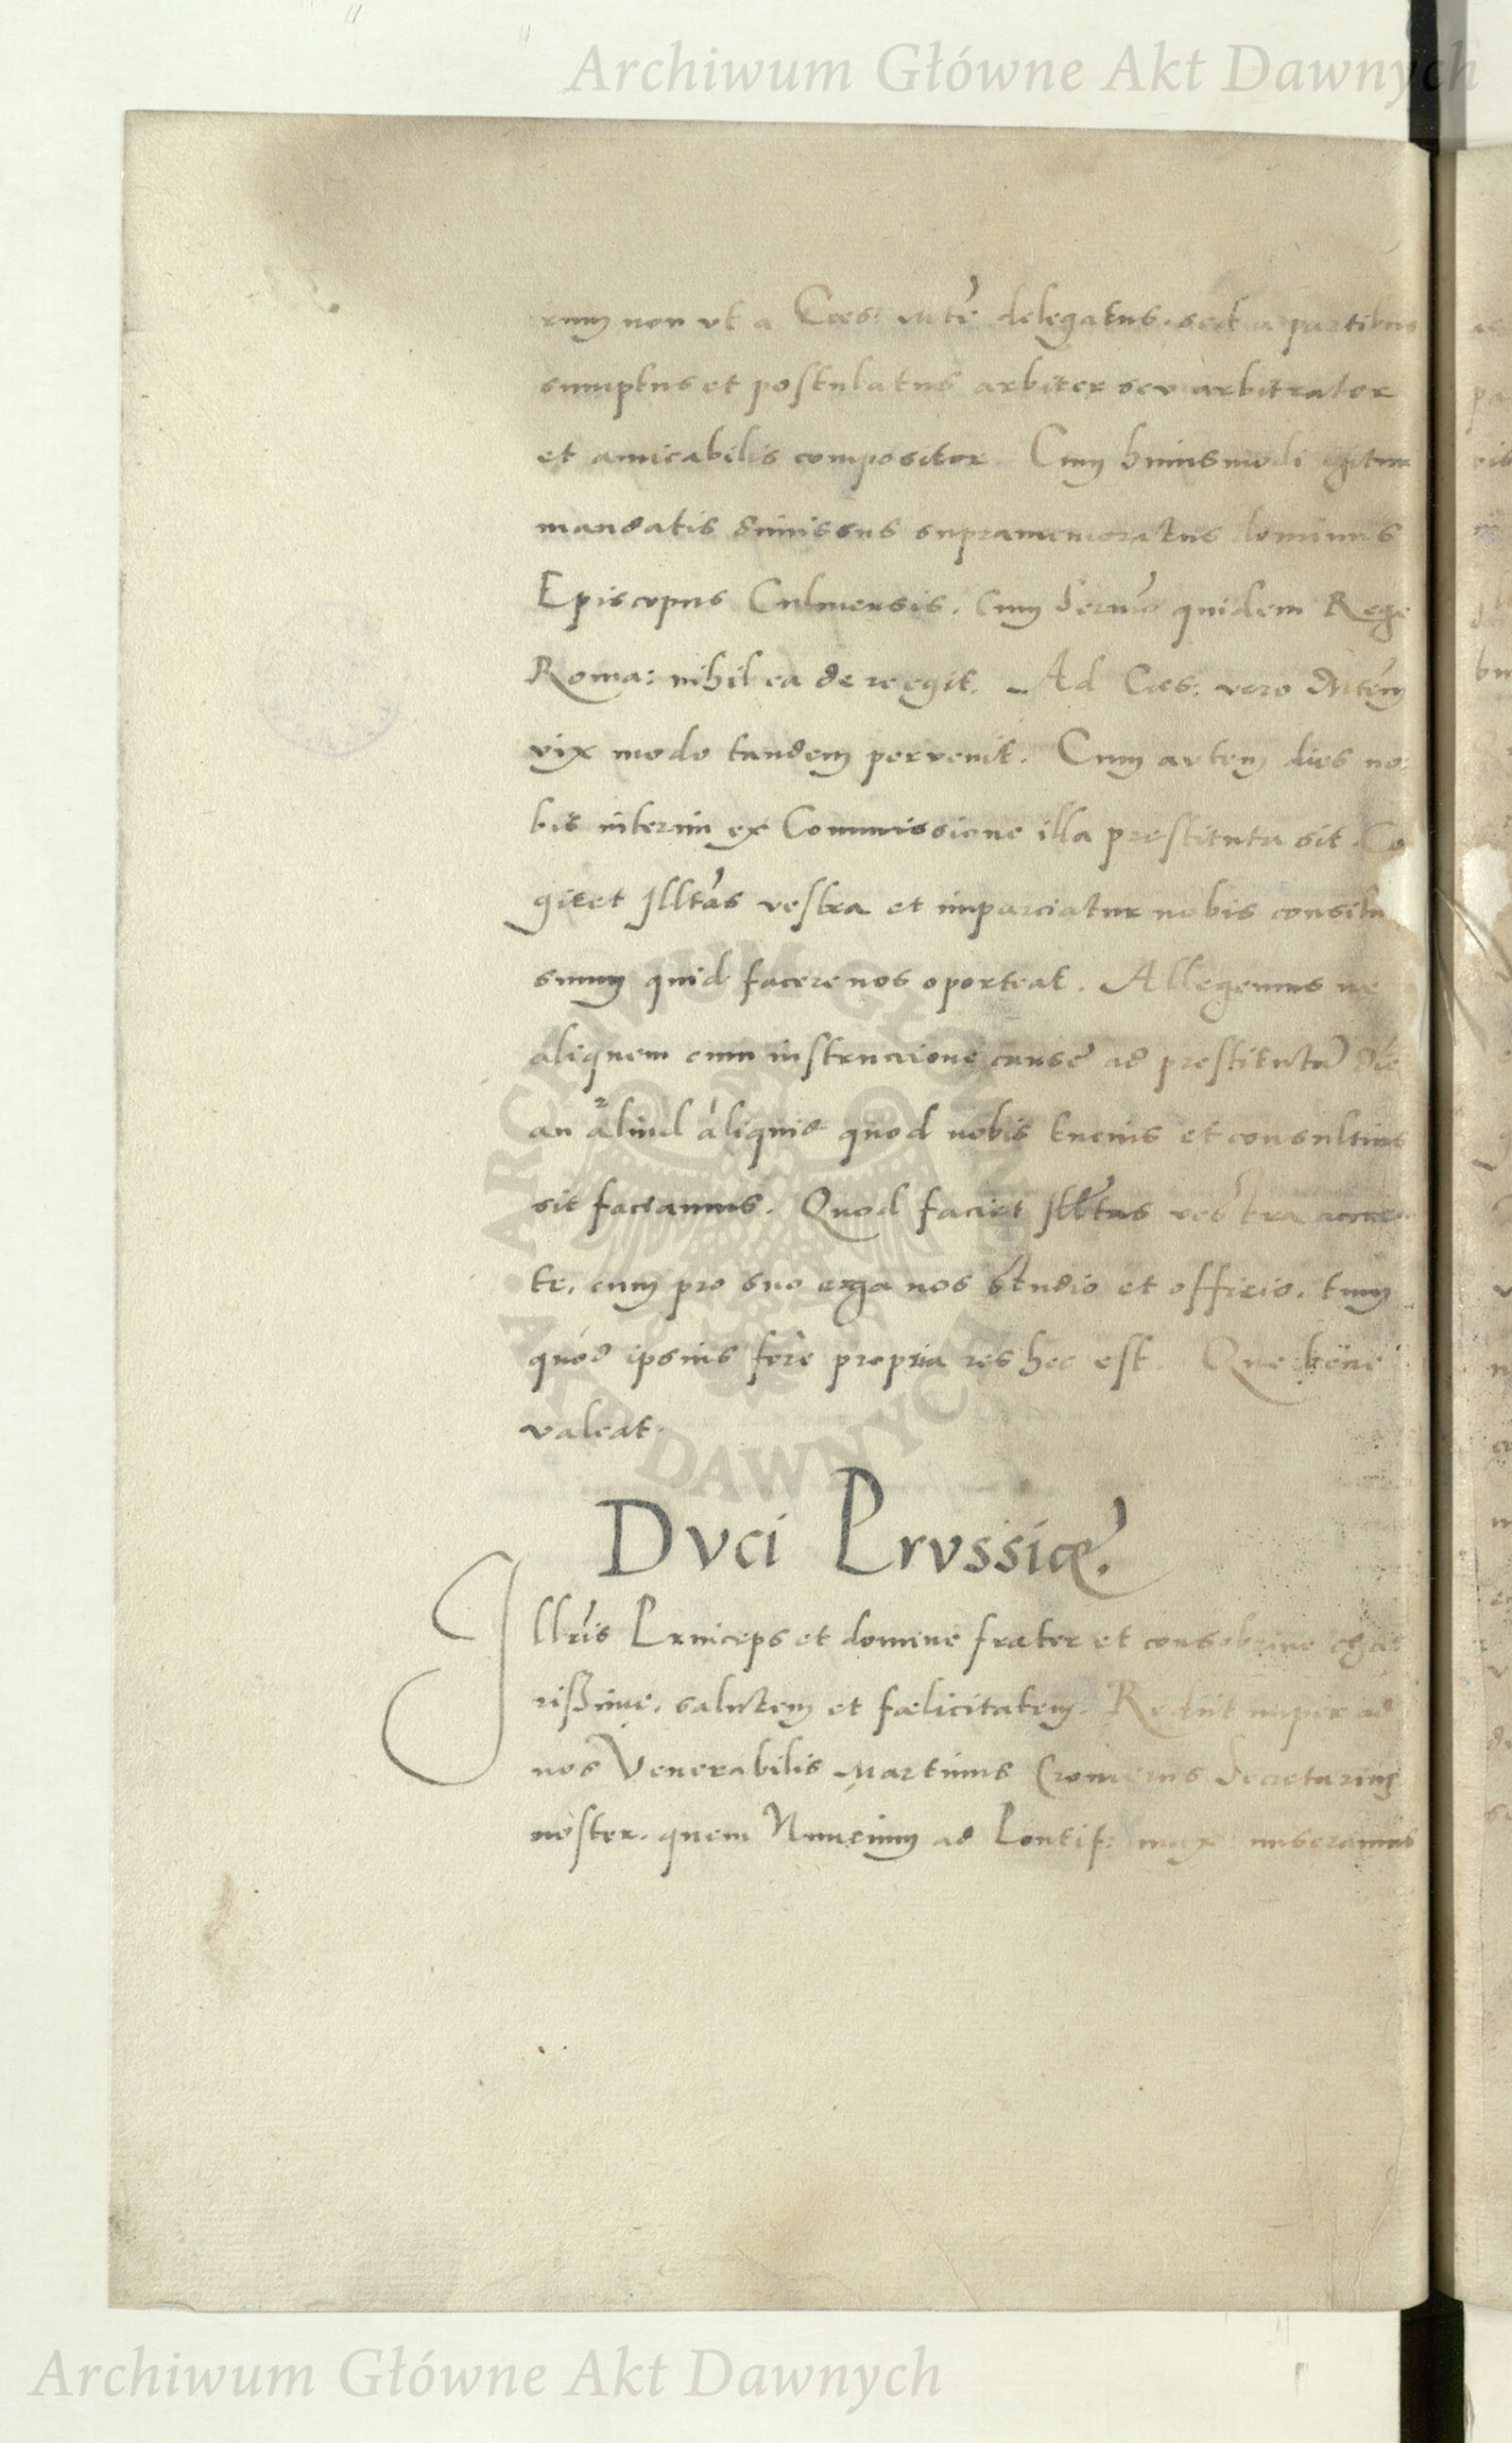 Archiwum Główne Akt Dawnych
rum non vt a Cæs: Mte delegatus, sed a partibus
sumptus et postulatus arbiter seu arbitrator
et amicabilis compositor. Cum huiusmodi igitur
mandatis dimissus supramemoratus dominus
Episcopus Culmensis. Cum Sermo quidem Rege
Roma: nihil ea de re egit. Ad Cæs: vero Mtem
vix modo tandem pervenit. Cum autem dies no:
bis interim ex Commissione illa prestituta sit. Co
gitet Illtas vestra et imparciatur nobis consilu
suum quid facere nos oporteat. Allegemus ne
aliquem cum instructione cause ad prestitutu die
an aliud aliquid quod nobis tucius et consultius
sit faciamus. Quod faciet Illtas vestra accura
te, cum pro suo erga nos studio et officio, tum
quod ipsius fere propria res hec est. Que bene
valeat.
Dvci Prvssiæ.
Illris Princeps et domine frater et consobrine cha:
rißime, salutem et fælicitatem. Rediit nuper ad
nos Venerabilis Martinus Cromerus Secretarius
noster, quem Nuncium ad Pontif: max: miseramus
ARCHIWUM GŁÓWNE AKT DAWNYCH
Archiwum Główne Akt Dawnych